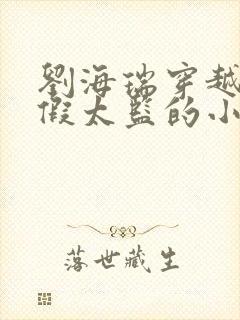 劉海瑞穿越
假太監的小
落世藏生